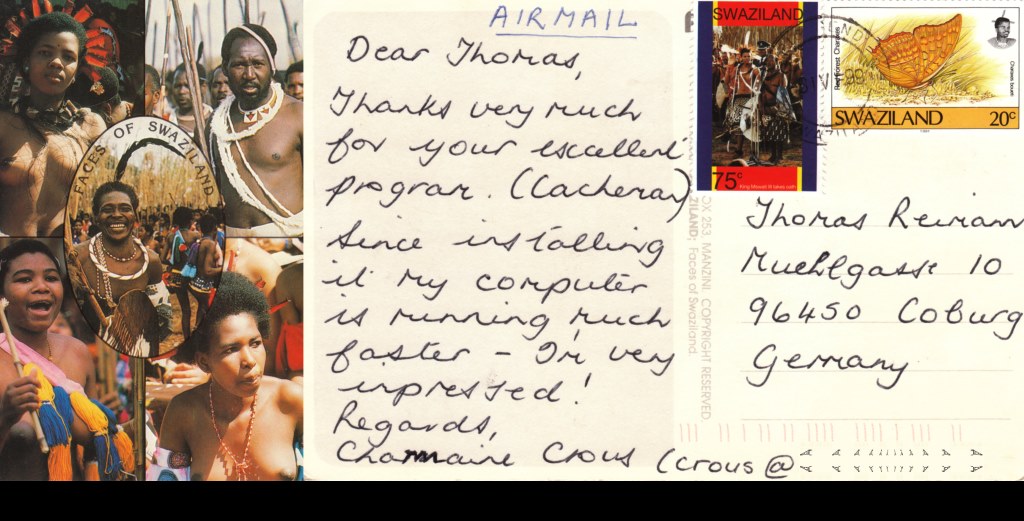 FACES OF SWAZILAND
AIRMAIL
Dear Thomas,
Thanks very much
for your excellent
program. (Cacheman)
Since installing
it my computer
is running much
faster - I'm very
impressed!
Regards,
Charmaine Crous (crous@
SWAZILAND
75c
King Mswati III takes oath
Rainforest Charaxes
Charaxes boueti
SWAZILAND
20c
OX 253, MANZINI. COPYRIGHT RESERVED.
ZILAND: Faces of Swaziland.
Thomas Reimann
Muehlgasse 10
96450 Coburg
Germany